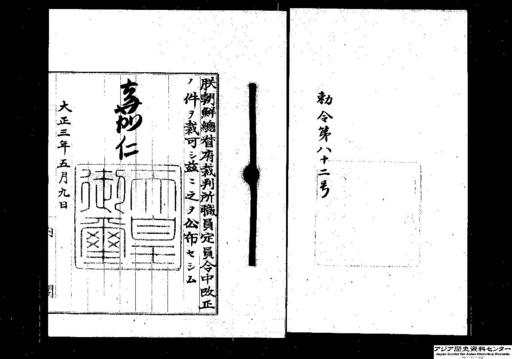 勅令第八十二号
朕朝鮮總督府裁判所職員定員令中改正
ノ件ヲ裁可シ茲ニ之ヲ公布セシム
嘉仁
天皇御璽
大正三年五月九日
内閣
アジア歴史資料センター
Japan Center for Asian Historical Records